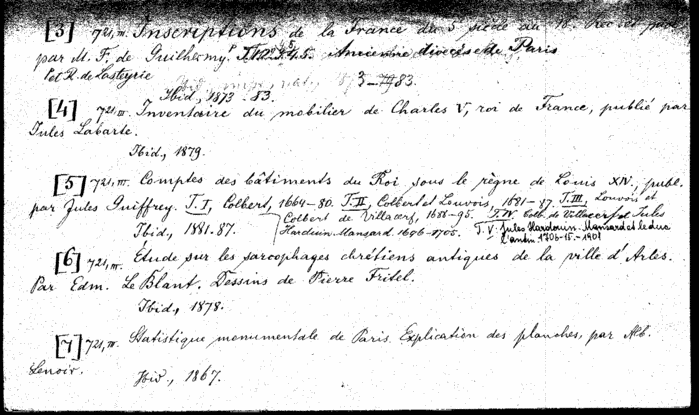 [3] 721, III. Inscriptions de la France du 5 siècle au 18. Recueil publ.
par M. F. de Guilhermy. T. 1-5. Ancienne diocèse de Paris
et R. de Lasteyrie
3-83.
Ibid, 1873-83.
[4] 721, III. Inventaire du mobilier de Charles V, roi de France, publié par
Jules Labarte.
Ibid, 1879.
[5] 721, III. Comptes des bâtiments du Roi sous le règne de Louis XIV, publ.
par Jules Guiffrey. T. I, Colbert, 1664-80. T. II, Colbert et Louvois, 1681-87. T. III, Louvois et
Colbert de Villacerf, 1688-95. T. IV. Colb. de Villacerf et Jules
Ibid, 1881-87. Hardouin-Mansard. 1696-1705. T. V. Jules Hardouin-Mansard et le duc
d'antin 1706-15.-1901
[6] 721, III. Étude sur les sarcophages chrétiens antiques de la ville d'Arles.
Par Edm. Le Blant. Dessins de Pierre Fritel.
Ibid, 1878.
[7] 721, III. Statistique monumentale de Paris. Explication des planches, par Alb.
Lenoir.
Ibid, 1867.